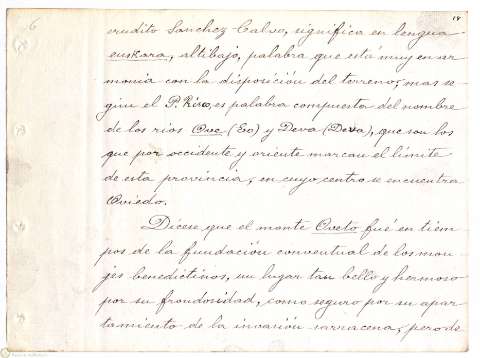 18
6
erudito Sanchez Calvo, significa en lengua
euskara, altibajo, palabra que está muy en ar
monia con la disposición del terreno; mas se
gún el P. Risco, es palabra compuesta del nombre
de los rios Ove (Eo) y Deva (Deva), que son los
que por occidente y oriente marcan el límite
de esta provincia, en cuyo centro se encuentra
Oviedo.
Dícese que el monte Oveto fué en tiem
pos de la fundación conventual de los mon
jes benedictinos, un lugar tan bello y hermoso
por su frondosidad, como seguro por su apar
tamiento de la invasión sarracena; pero de